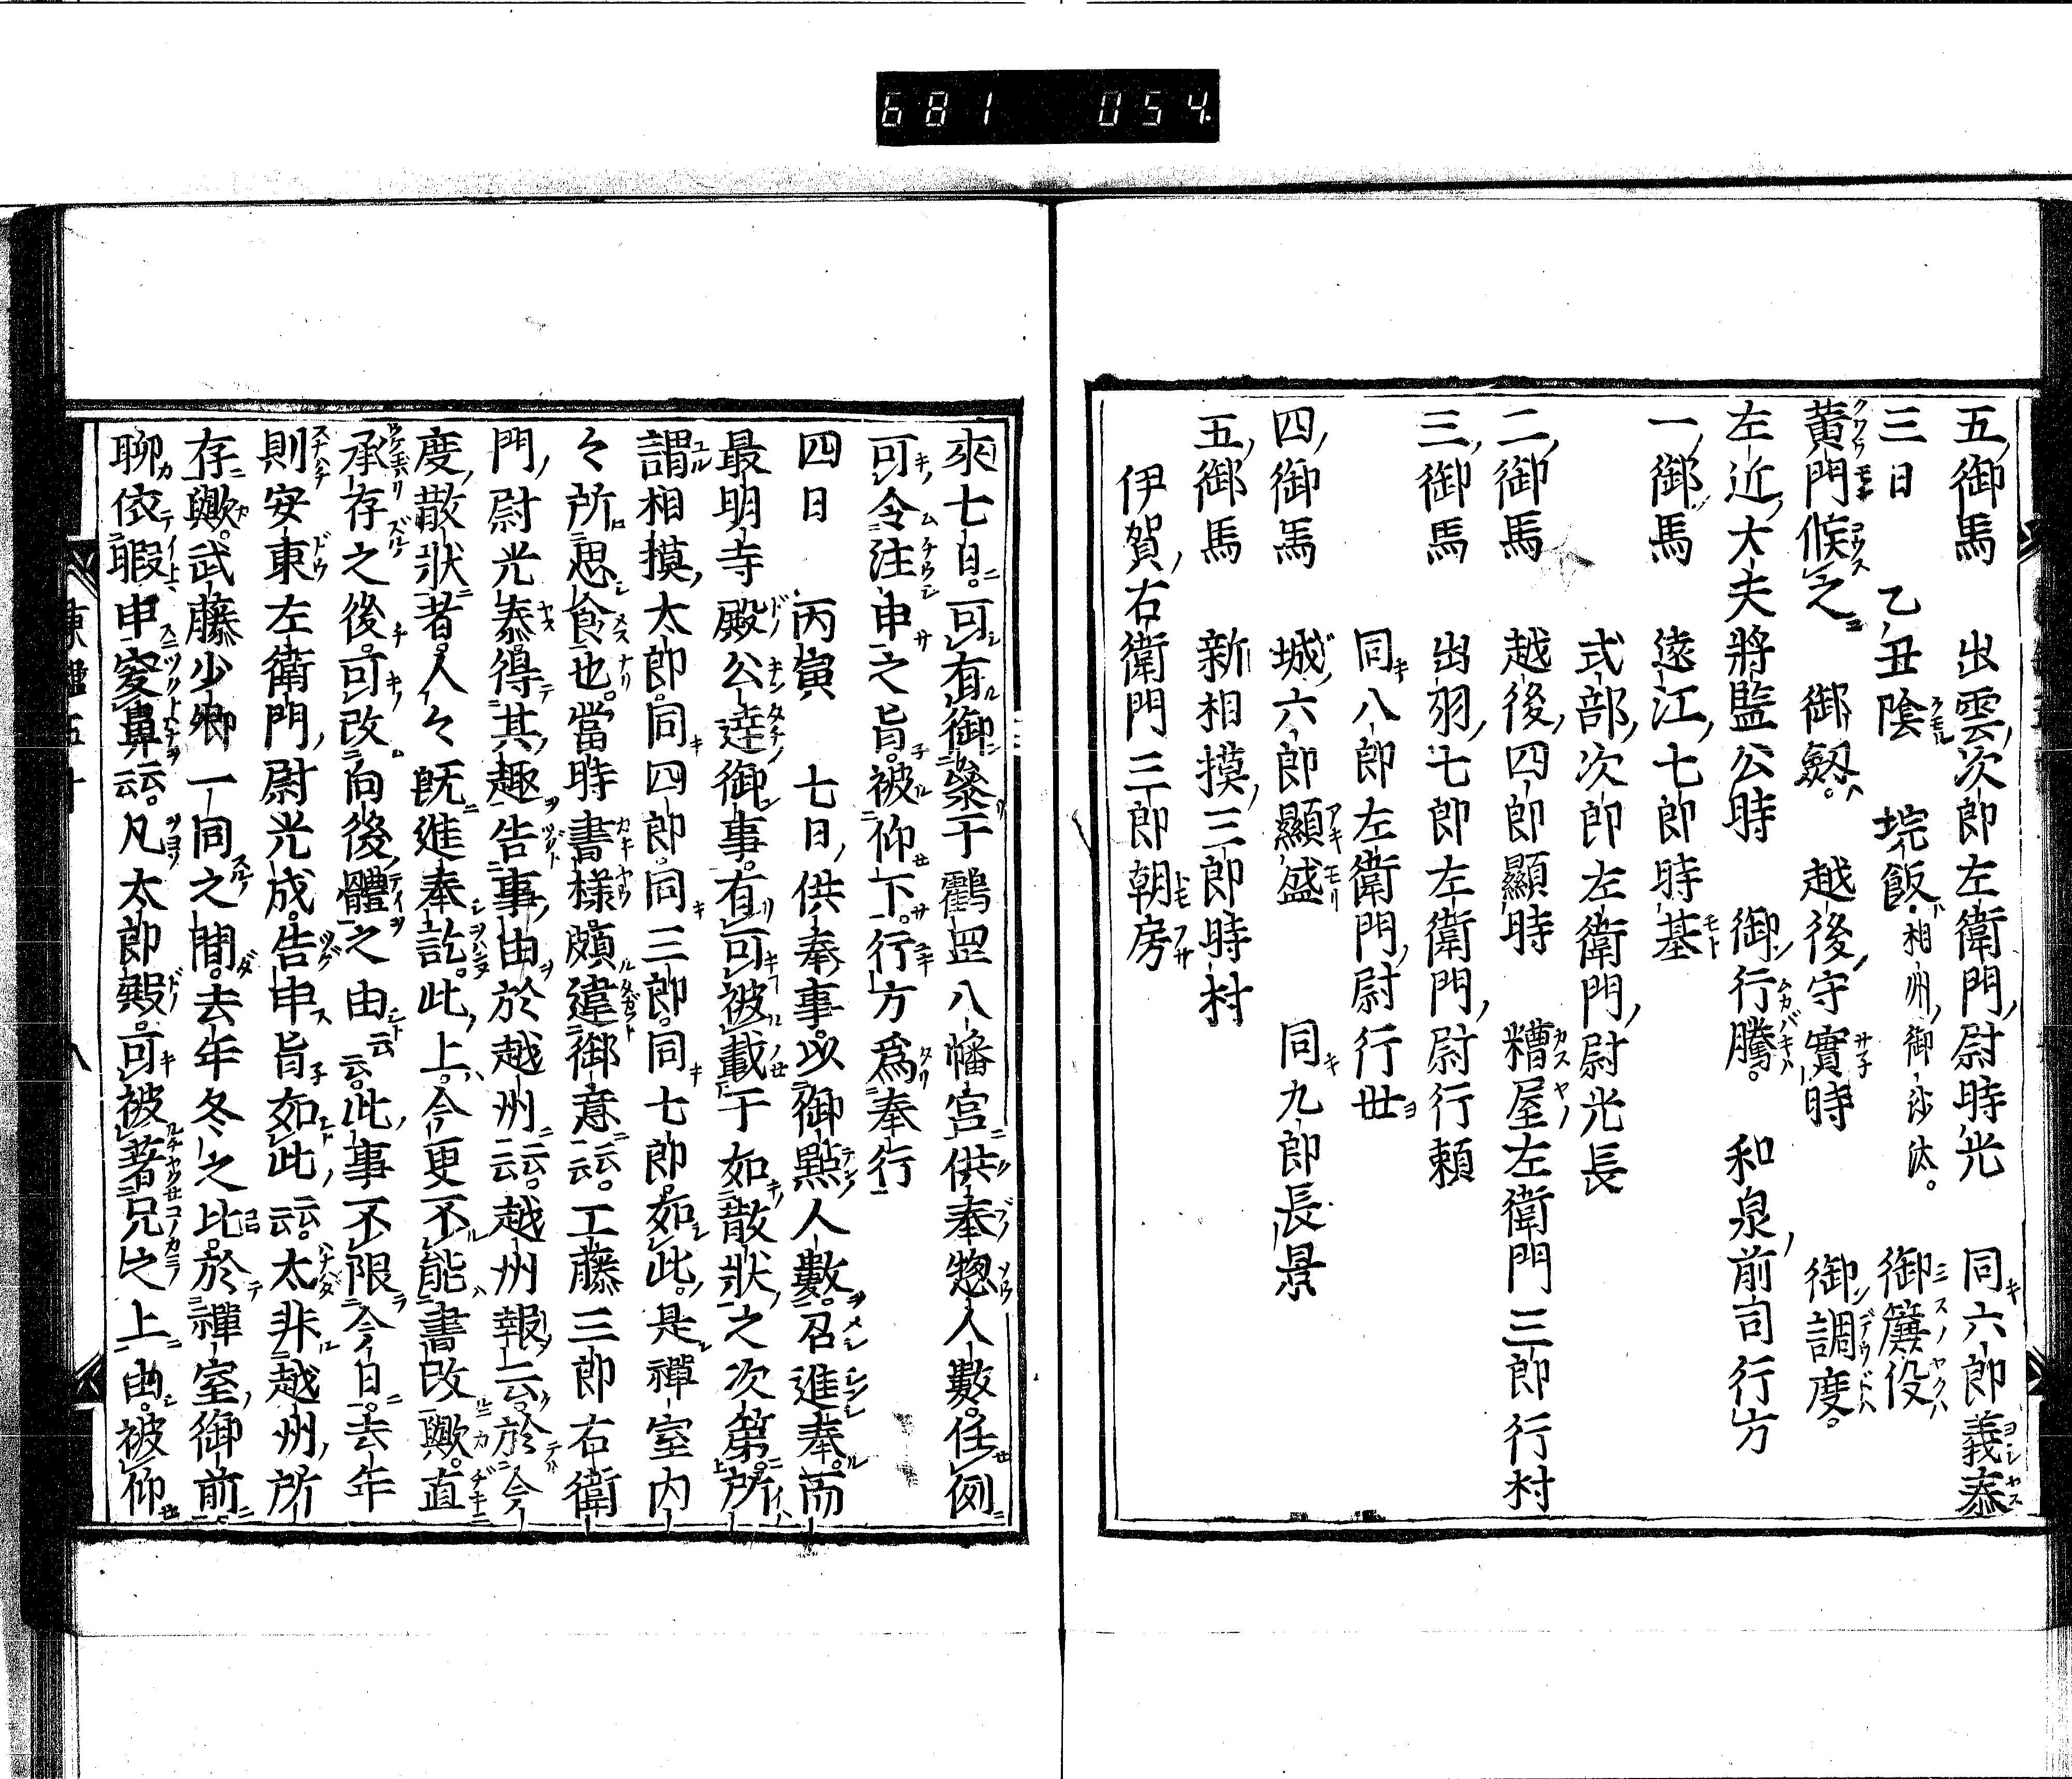 681 054.
五御馬 出雲次郎左衛門尉時光 同六郎義泰
三日 乙丑陰 垸飯相州御沙汰。 御簾役
黄門候之 御劔。 越後守實時 御調度。
左近大夫將監公時 御行騰。 和泉前司行方
一御馬 遠江七郎時基
式部次郎左衛門尉光長
二御馬 越後四郎顯時 糟屋左衛門三郎行村
三御馬 出羽七郎左衛門尉行頼
同八郎左衛門尉行世
四御馬 城六郎顯盛 同九郎長景
五御馬 新相摸三郎時村
伊賀右衛門三郎朝房
來七日。可有御參于鸖岡八幡宮供奉惣人數。任例
可令注申之旨。被仰下。行方爲奉行
四日 丙寅 七日供奉事。以御點人數。召進奉。而
最明寺殿公達御事。有可被載于如散狀之次第。所
謂相摸太郎。同四郎。同三郎。同七郎。如此。是禪室内
々所思食也。當時書樣。頗違御意云云。工藤三郎右衛
門尉光泰。得其趣告事由於越州云云。越州報云。於今
度散狀者。人々既進奉訖。此上。今更不能書改歟。直
承存之後。可改向後體之由云云。此事不限今日。去年
則安東左衛門尉光成。告申旨如此云云。太非越州所
存歟。武藤少卿一同之間。去年冬之比。於禪室御前
聊依暇申窒鼻云云。凡太郎殿。可被著兄之上由。被仰